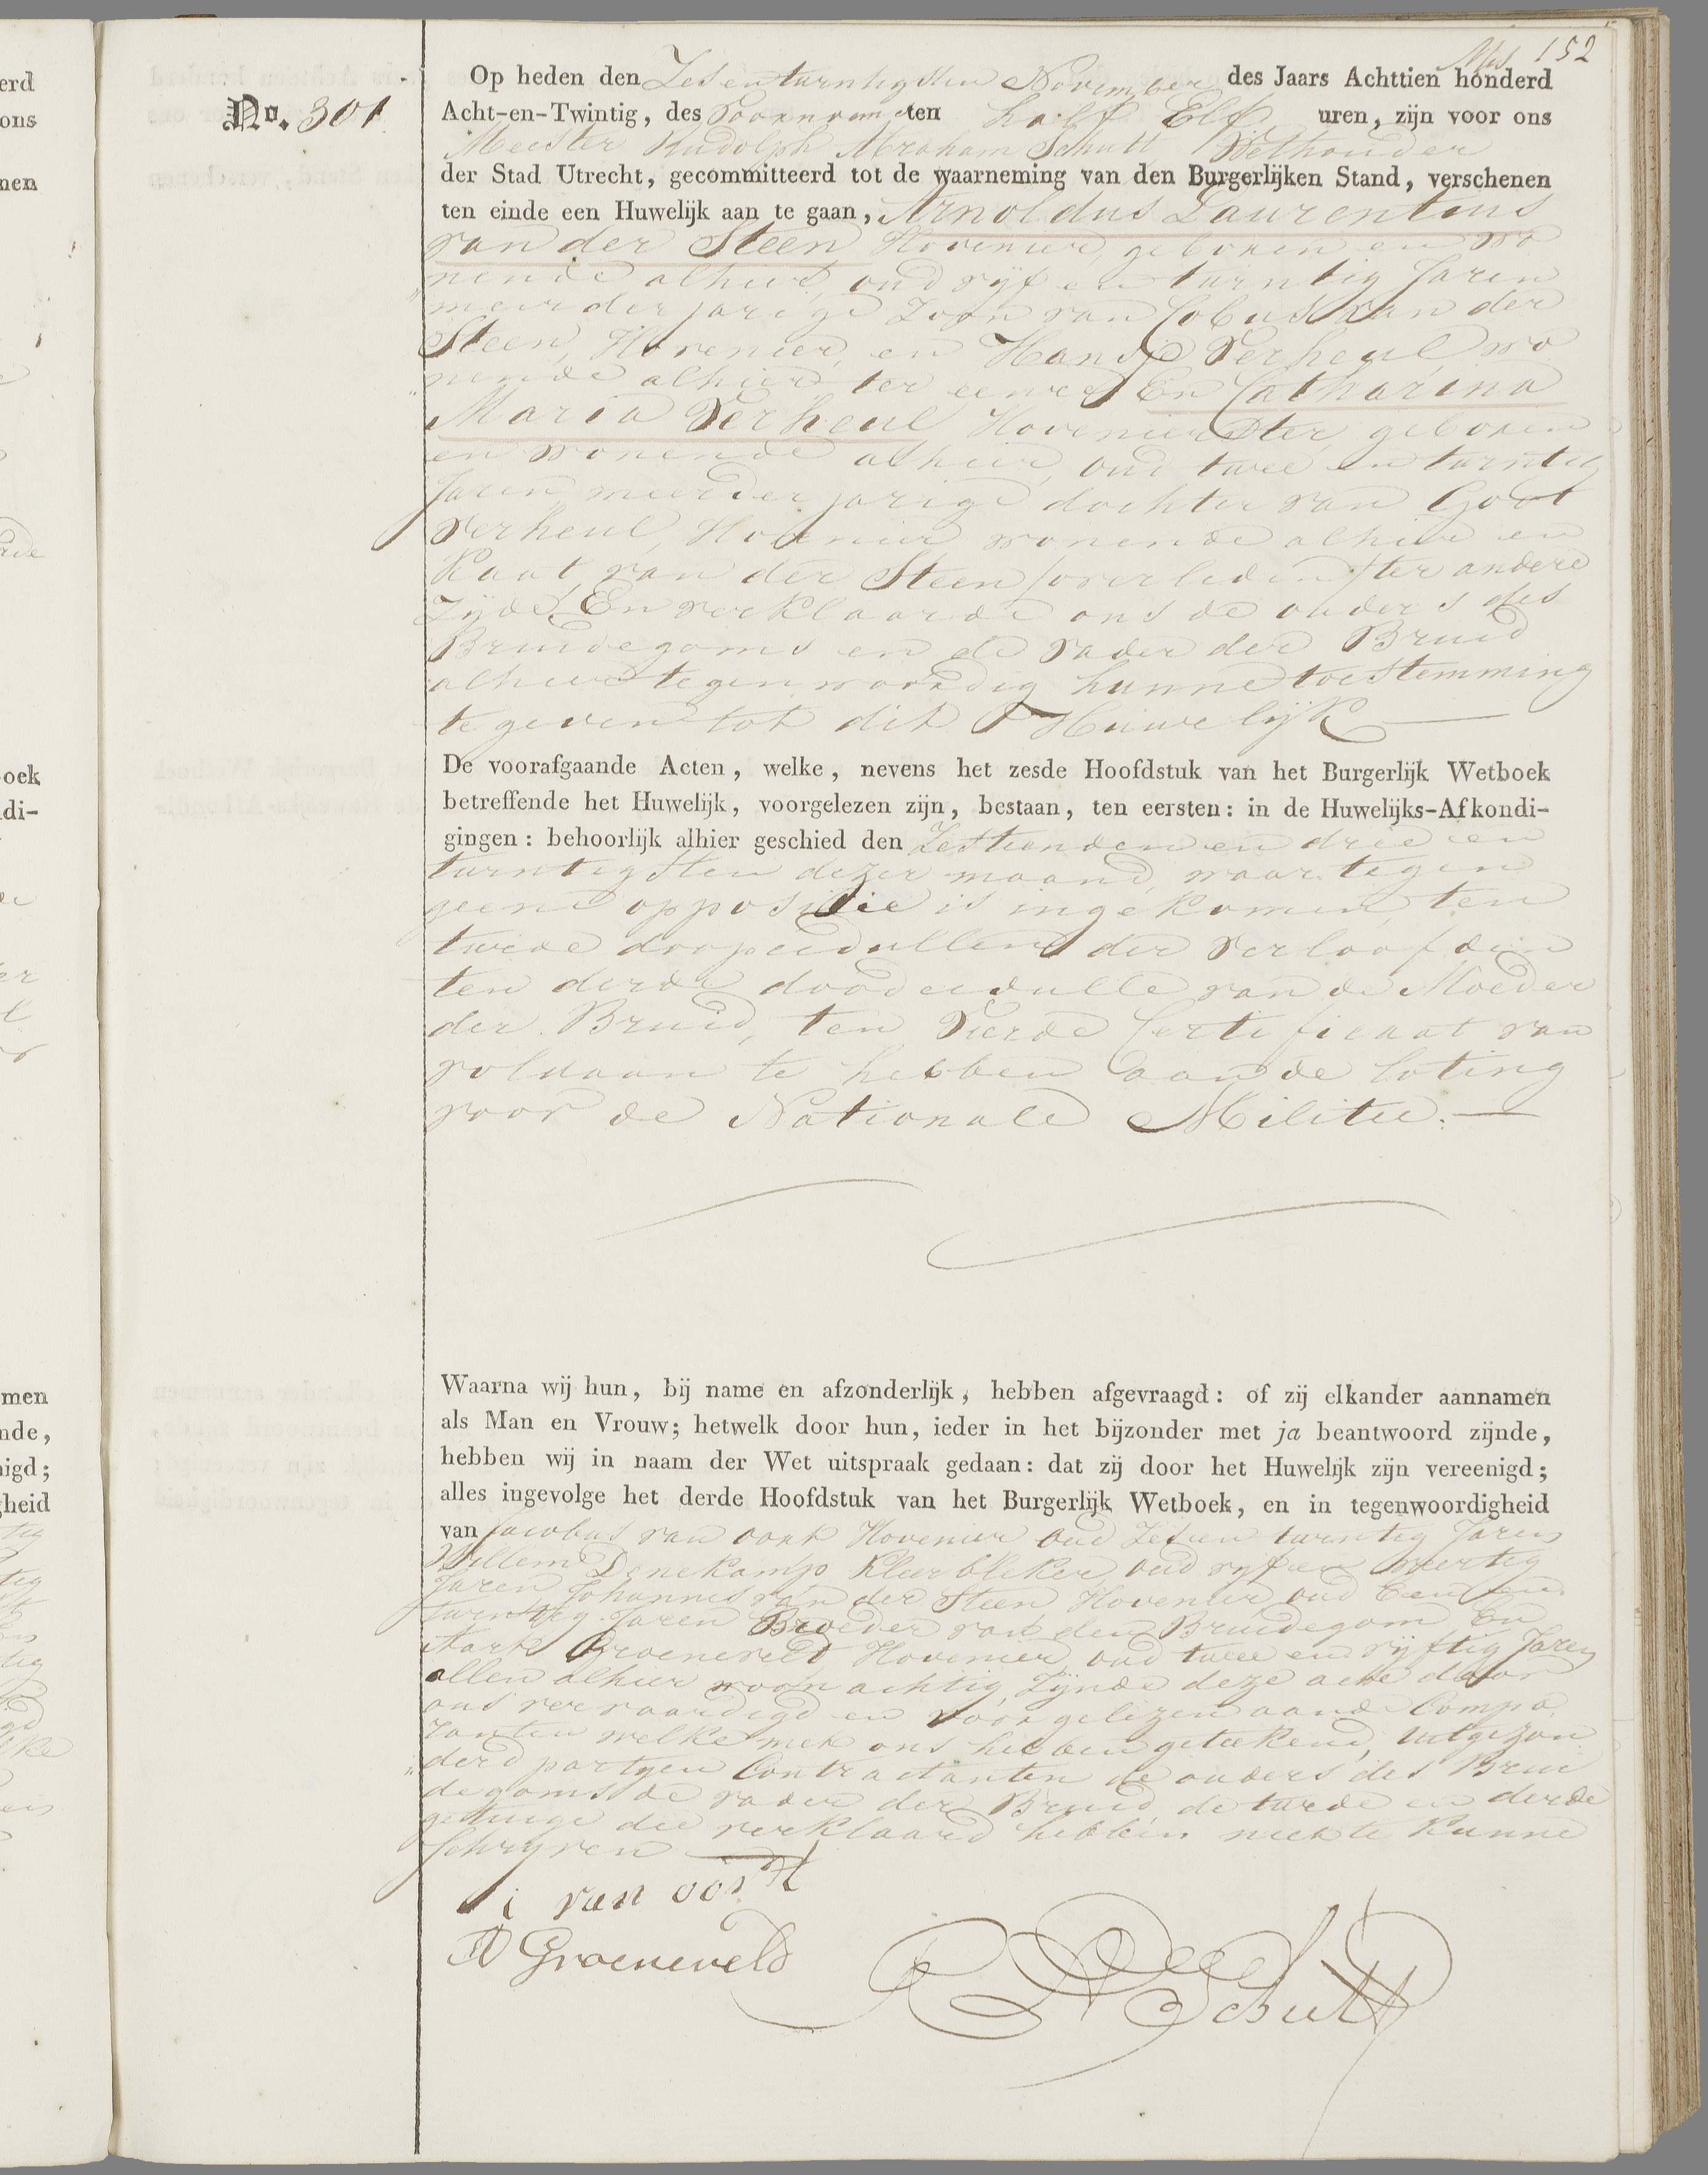 152
No. 301
Op heden den Zesentwintigsten November des Jaars Achttien honderd
Acht-en-Twintig, des Voormm. ten half Elf uren, zijn voor ons
Meester Rudolph Abraham Schutt Wethouder
der Stad Utrecht, gecommitteerd tot de waarneming van den Burgerlijken Stand, verschenen
ten einde een Huwelijk aan te gaan, Arnoldus Laurentius
van der Steen Hovenier, geboren en wo
nende alhier, oud vyf en twintig Jaren
meerderjarige Zoon van Cobus van der
Steen, Hovenier, en Hansje Verheul, wo
nende alhier ter eenre En Catharina
Maria Verheul Hovenierster, geboren
en wonende alhier, oud twee en twintig
Jaren, meerderjarige dochter van Goot
Verheul, Hovenier wonende alhier en
Kaat van der Steen /overleden/ ter andere
Zyde. En verklaarde ons de ouders des
Bruidegoms en de vader der Bruid
alhier tegenwoordig hunne toestemming
te geven tot dit Huwelijk
De voorafgaande Acten, welke, nevens het zesde Hoofdstuk van het Burgerlijk Wetboek
betreffende het Huwelijk, voorgelezen zijn, bestaan, ten eersten: in de Huwelijks-Afkondi-
gingen: behoorlijk alhier geschied den Zestienden en drie en
twintigsten dezer maand, waar tegen
geene oppositie is ingekomen, ten
twede doopcedullen der verloofden
ten derde doodcedulle van de Moeder
der Bruid, ten vierde Certificaat van
voldaan te hebben aan de loting
voor de Nationale Militie.
Waarna wij hun, bij name en afzonderlijk, hebben afgevraagd: of zij elkander aannamen
als Man en Vrouw; hetwelk door hun, ieder in het bijzonder met ja beantwoord zijnde,
hebben wij in naam der Wet uitspraak gedaan: dat zij door het Huwelijk zijn vereenigd;
alles ingevolge het derde Hoofdstuk van het Burgerlijk Wetboek, en in tegenwoordigheid
van Jacobus van oort Hovenier oud Zes en twintig Jaren
Willem Denekamp Kleerbleker, oud vyf en veertig
Jaren Johannes van der Steen Hovenier, oud Een en
twintig Jaren Broeder van den Bruidegom En
Aart Groeneveld Hovenier, oud twee en vyftig Jaren
allen alhier woonachtig, Zijnde deze acte door
ons vervaardigd en voorgelezen aan de Compa
ranten welke met ons hebben getekend, uitgezon
derd partyen Contractanten de ouders des Brui
degoms de vader der Bruid, de twede en derde
getuige die verklaard hebben niet te kunne
schryven
i van oort
A Groeneveld
RA Schutt